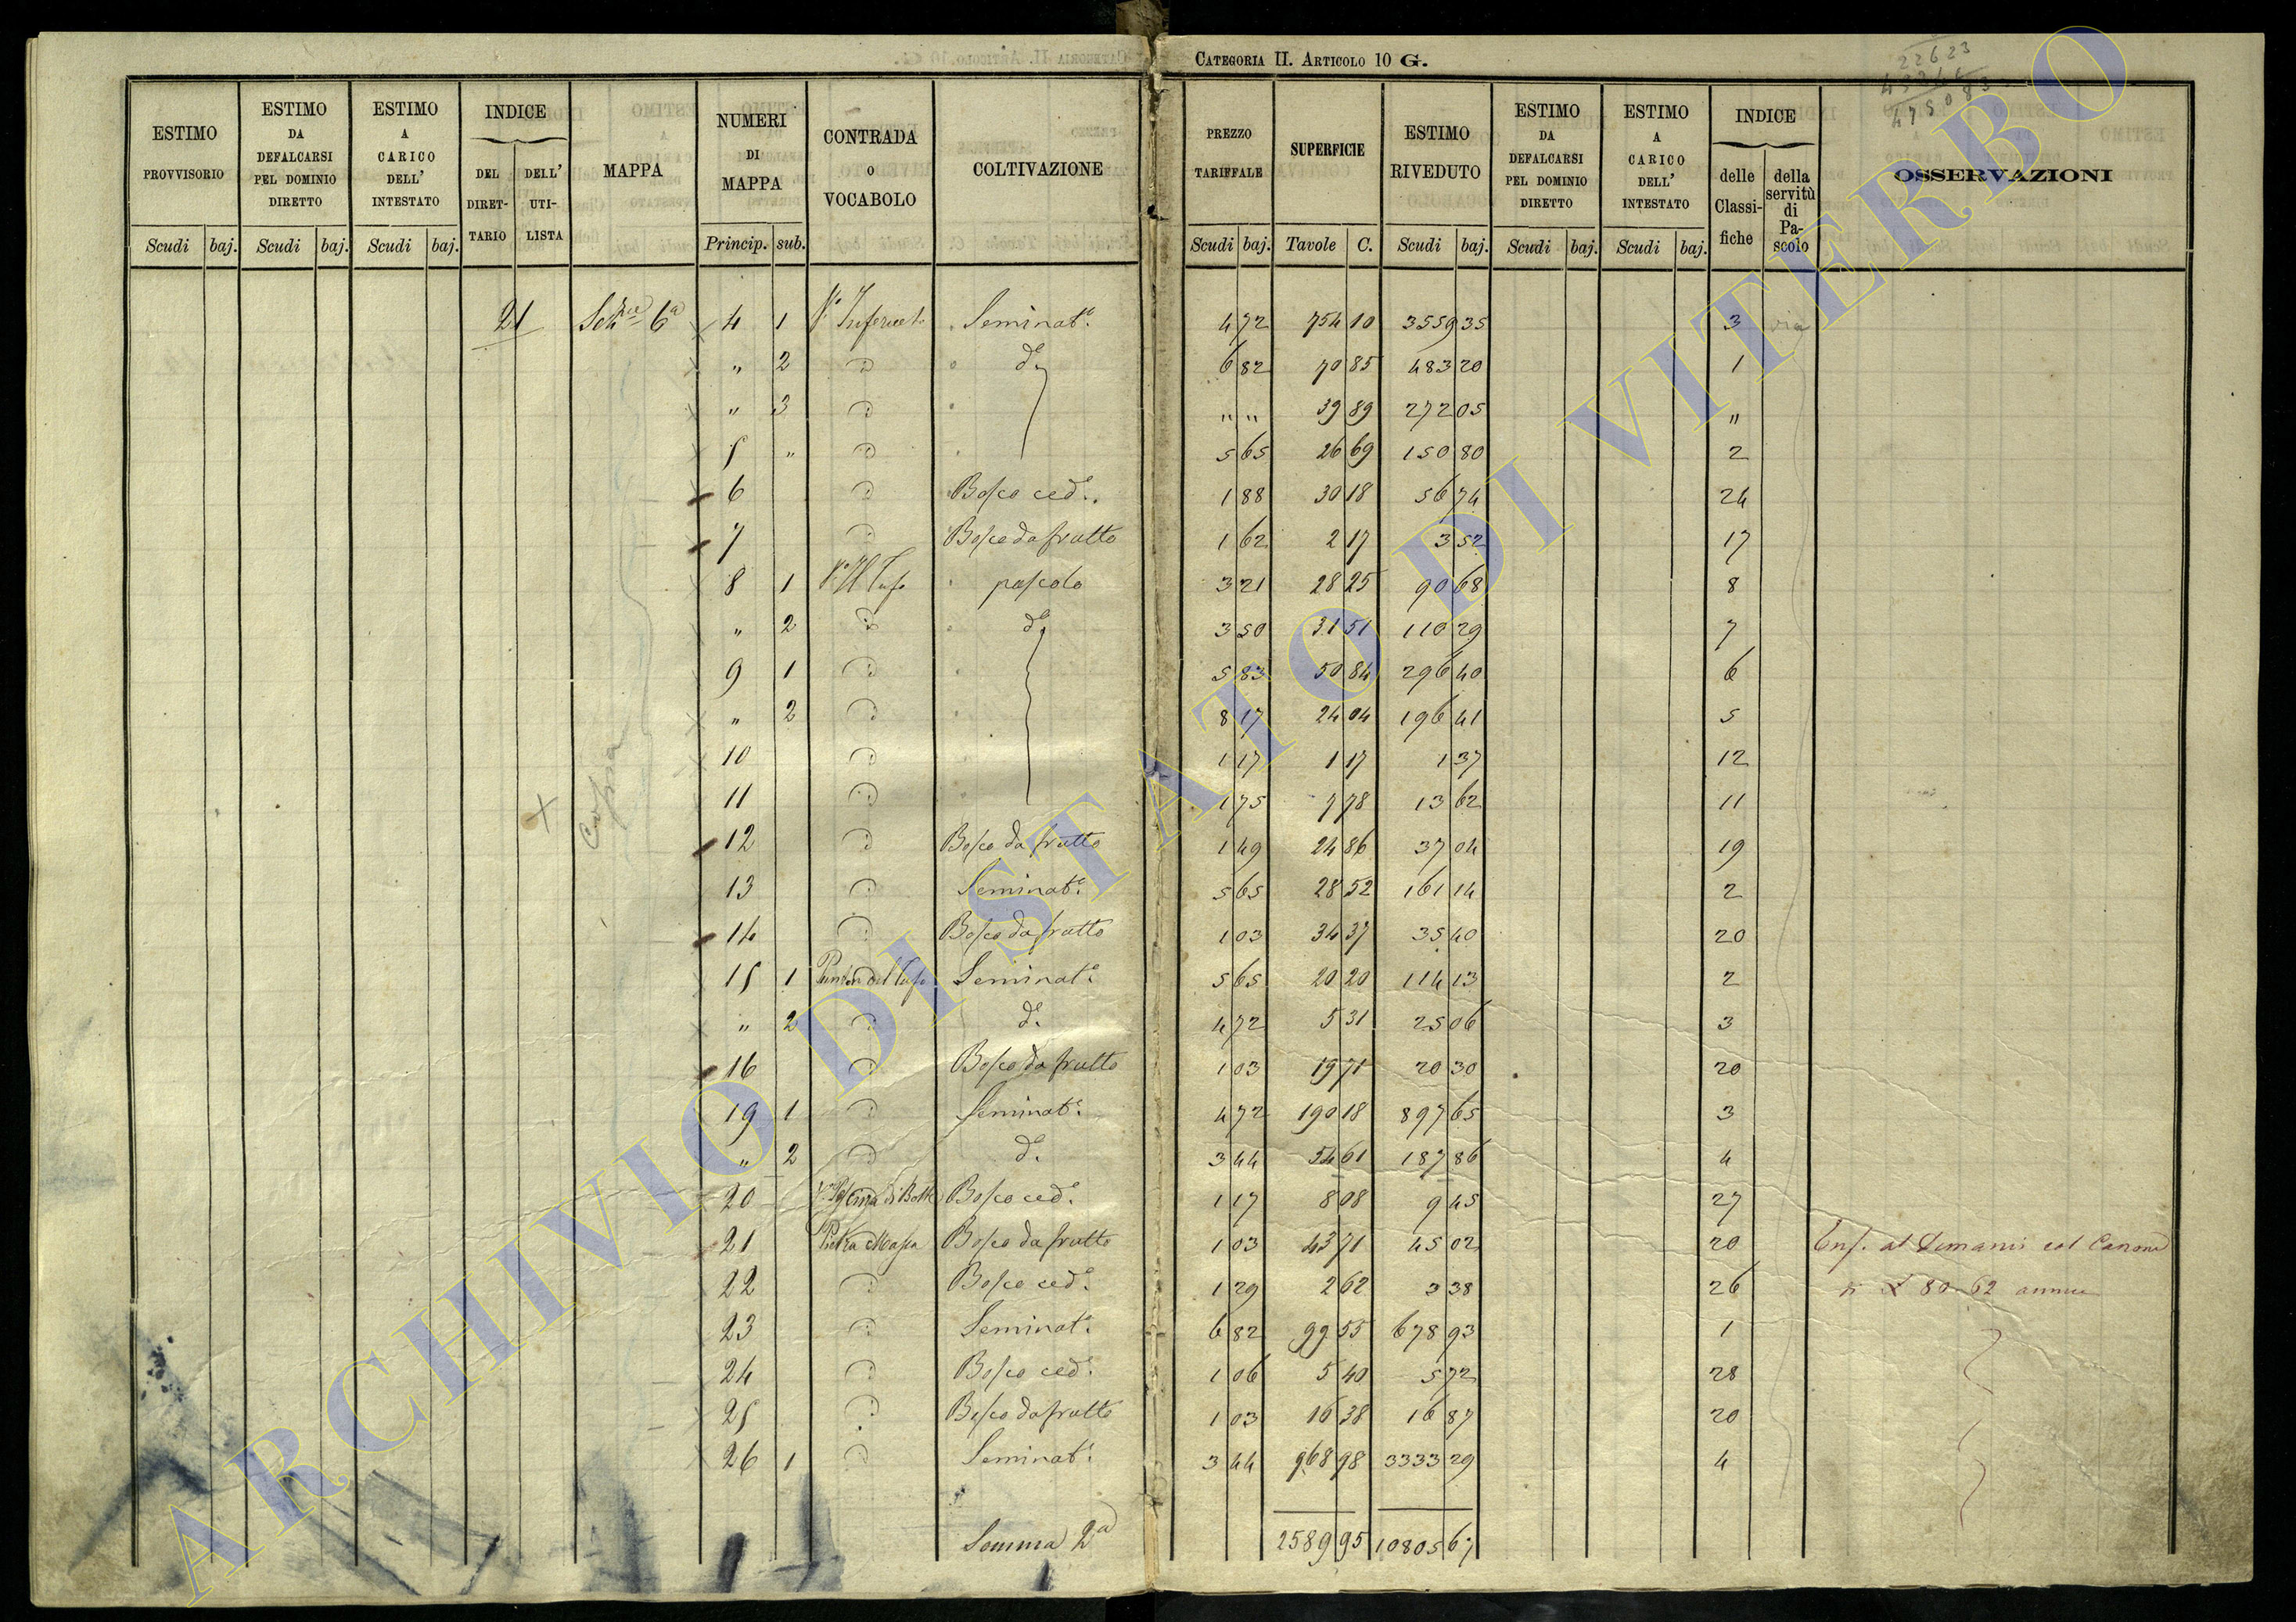 CATEGORIA II. ARTICOLO 10 G.
22623
475083
ESTIMO PROVVISORIO
ESTIMO DA DEFALCARSI PEL DOMINIO DIRETTO
ESTIMO A CARICO DELL' INTESTATO
INDICE
DEL DIRET-TARIO
DELL' UTI-LISTA
MAPPA
NUMERI DI MAPPA
CONTRADA O VOCABOLO
COLTIVAZIONE
PREZZO TARIFFALE
SUPERFICIE
ESTIMO RIVEDUTO
ESTIMO DA DEFALCARSI PEL DOMINIO DIRETTO
ESTIMO A CARICO DELL' INTESTATO
INDICE
delle Classi-fiche
della servitù di Pa-scolo
OSSERVAZIONI
Scudi baj. Scudi baj. Scudi baj. Princip. sub. Scudi baj. Tavole C. Scudi baj. Scudi baj. Scudi baj.
21 Sez 6a 4 1 Seminato 4 72 754 10 3559 35 3 via
" 2 do 6 82 70 85 483 20 1
" 3 " " 39 89 272 05 "
5 " 5 65 26 69 150 80 2
6 Bosco ced. 1 88 30 18 56 74 24
7 Bosco da frutto 1 62 2 17 3 52 17
8 1 Tufo pascolo 3 21 28 25 90 68 8
" 2 do 3 50 31 51 110 29 7
9 1 5 83 50 84 296 40 6
" 2 8 17 24 04 196 41 5
10 1 17 1 17 1 37 12
Cassa
11 1 75 7 78 13 62 11
12 Bosco da frutto 1 49 24 86 37 04 19
13 Seminato 5 65 28 52 161 14 2
14 Bosco da frutto 1 03 34 37 35 40 20
15 1 Punton del Tufo Seminato 5 65 20 20 114 13 2
" 2 do 4 72 5 31 25 06 3
16 Bosco da frutto 1 03 19 71 20 30 20
19 1 Seminato 4 72 190 18 897 65 3
" 2 do 3 44 54 61 187 86 4
20 Bosco ced. 1 17 8 08 9 45 27
21 Pietra Massa Bosco da frutto 1 03 43 71 45 02 20 Enf. al Demanio col Canone
22 Bosco ced. 1 29 2 62 3 38 26 80 62 annue
23 Seminato 6 82 99 55 678 93 1
24 Bosco ced. 1 06 5 40 5 72 28
25 Bosco da frutto 1 03 16 38 16 87 20
26 1 Seminato 3 44 968 98 3333 29 4
Somma 2a 2589 95 10805 67
ARCHIVIO DI STATO DI VITERBO